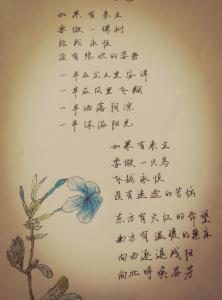 如果有来生
要做一棵树
站成永恒
没有悲欢的姿势
一半在尘土里安详
一半在风里飞翔
一半洒落阴凉
一半沐浴阳光
如果有来生
要做一只鸟
飞越永恒
没有迷途的苦恼
东方有火红的希望
南方有温暖的巢床
向西逐退残阳
向北呼唤芬芳